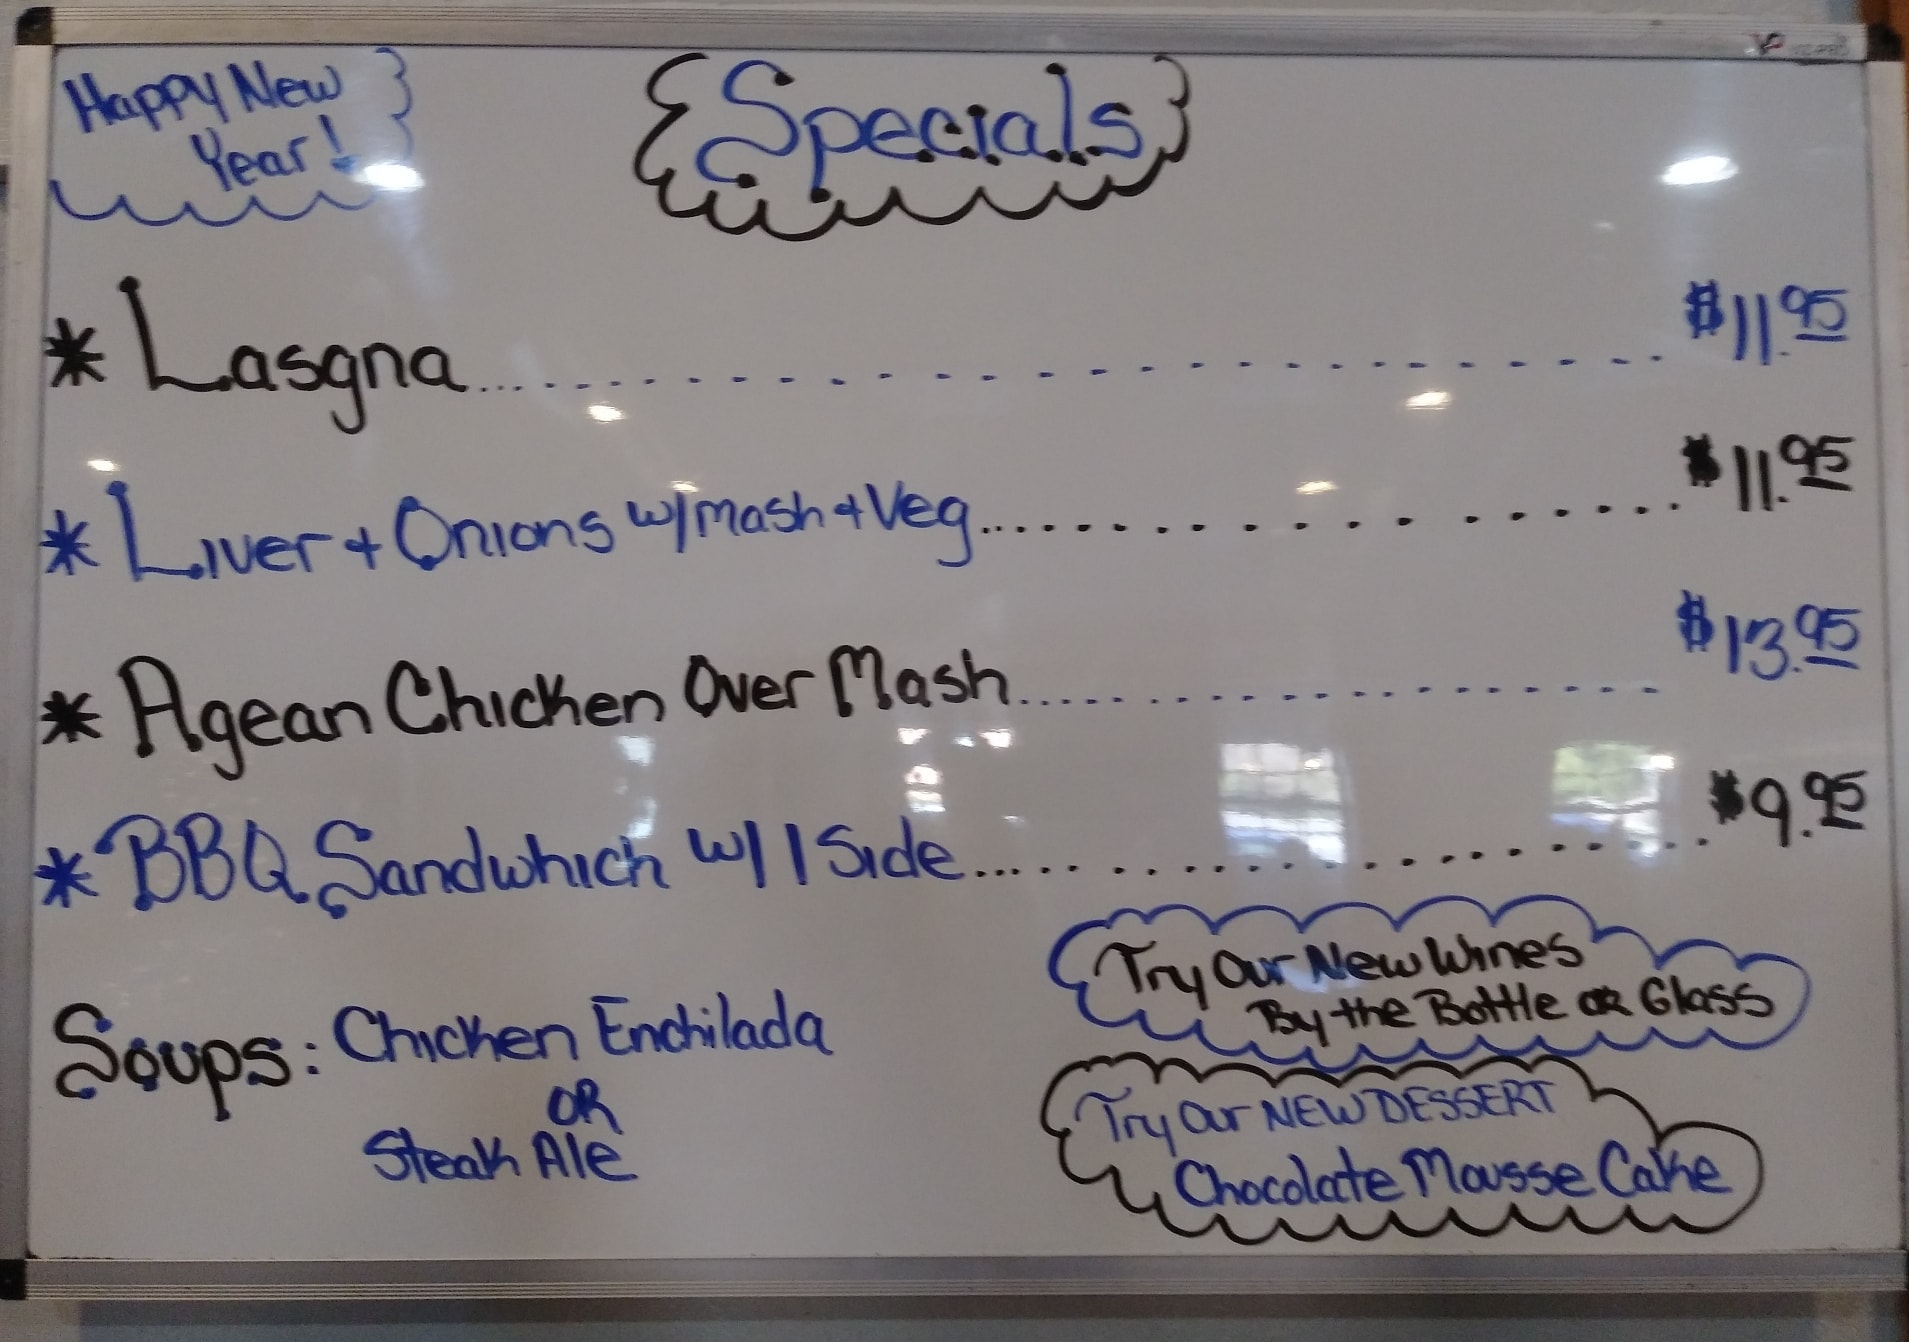 Happy New
Year!
Specials
* Lasgna.................... $11.95
* Liver + Onions w/mash + Veg.................... $11.95
* Agean Chicken Over Mash.................... $13.95
* BBQ Sandwhich w/ 1 Side.................... $9.95
Soups: Chicken Enchilada
OR
Steak Ale
Try Our New Wines
By the Bottle or Glass
Try Our NEW DESSERT
Chocolate Mousse Cake